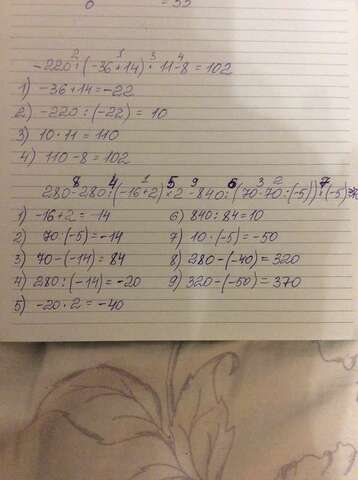 0 = 55
-220:(-36+14)·11-8=102
1) -36+14=-22
2) -220:(-22)=10
3) 10·11=110
4) 110-8=102
280-280:(-16+2)·2-840:(70-70·(-5))·(-5)=370
1) -16+2=-14
2) 70·(-5)=-14
3) 70-(-14)=84
4) 280:(-14)=-20
5) -20·2=-40
6) 840:84=10
7) 10·(-5)=-50
8) 280-(-40)=320
9) 320-(-50)=370